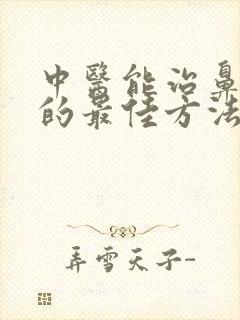 中醫能治鼻
的最佳方法
弄雪天子-